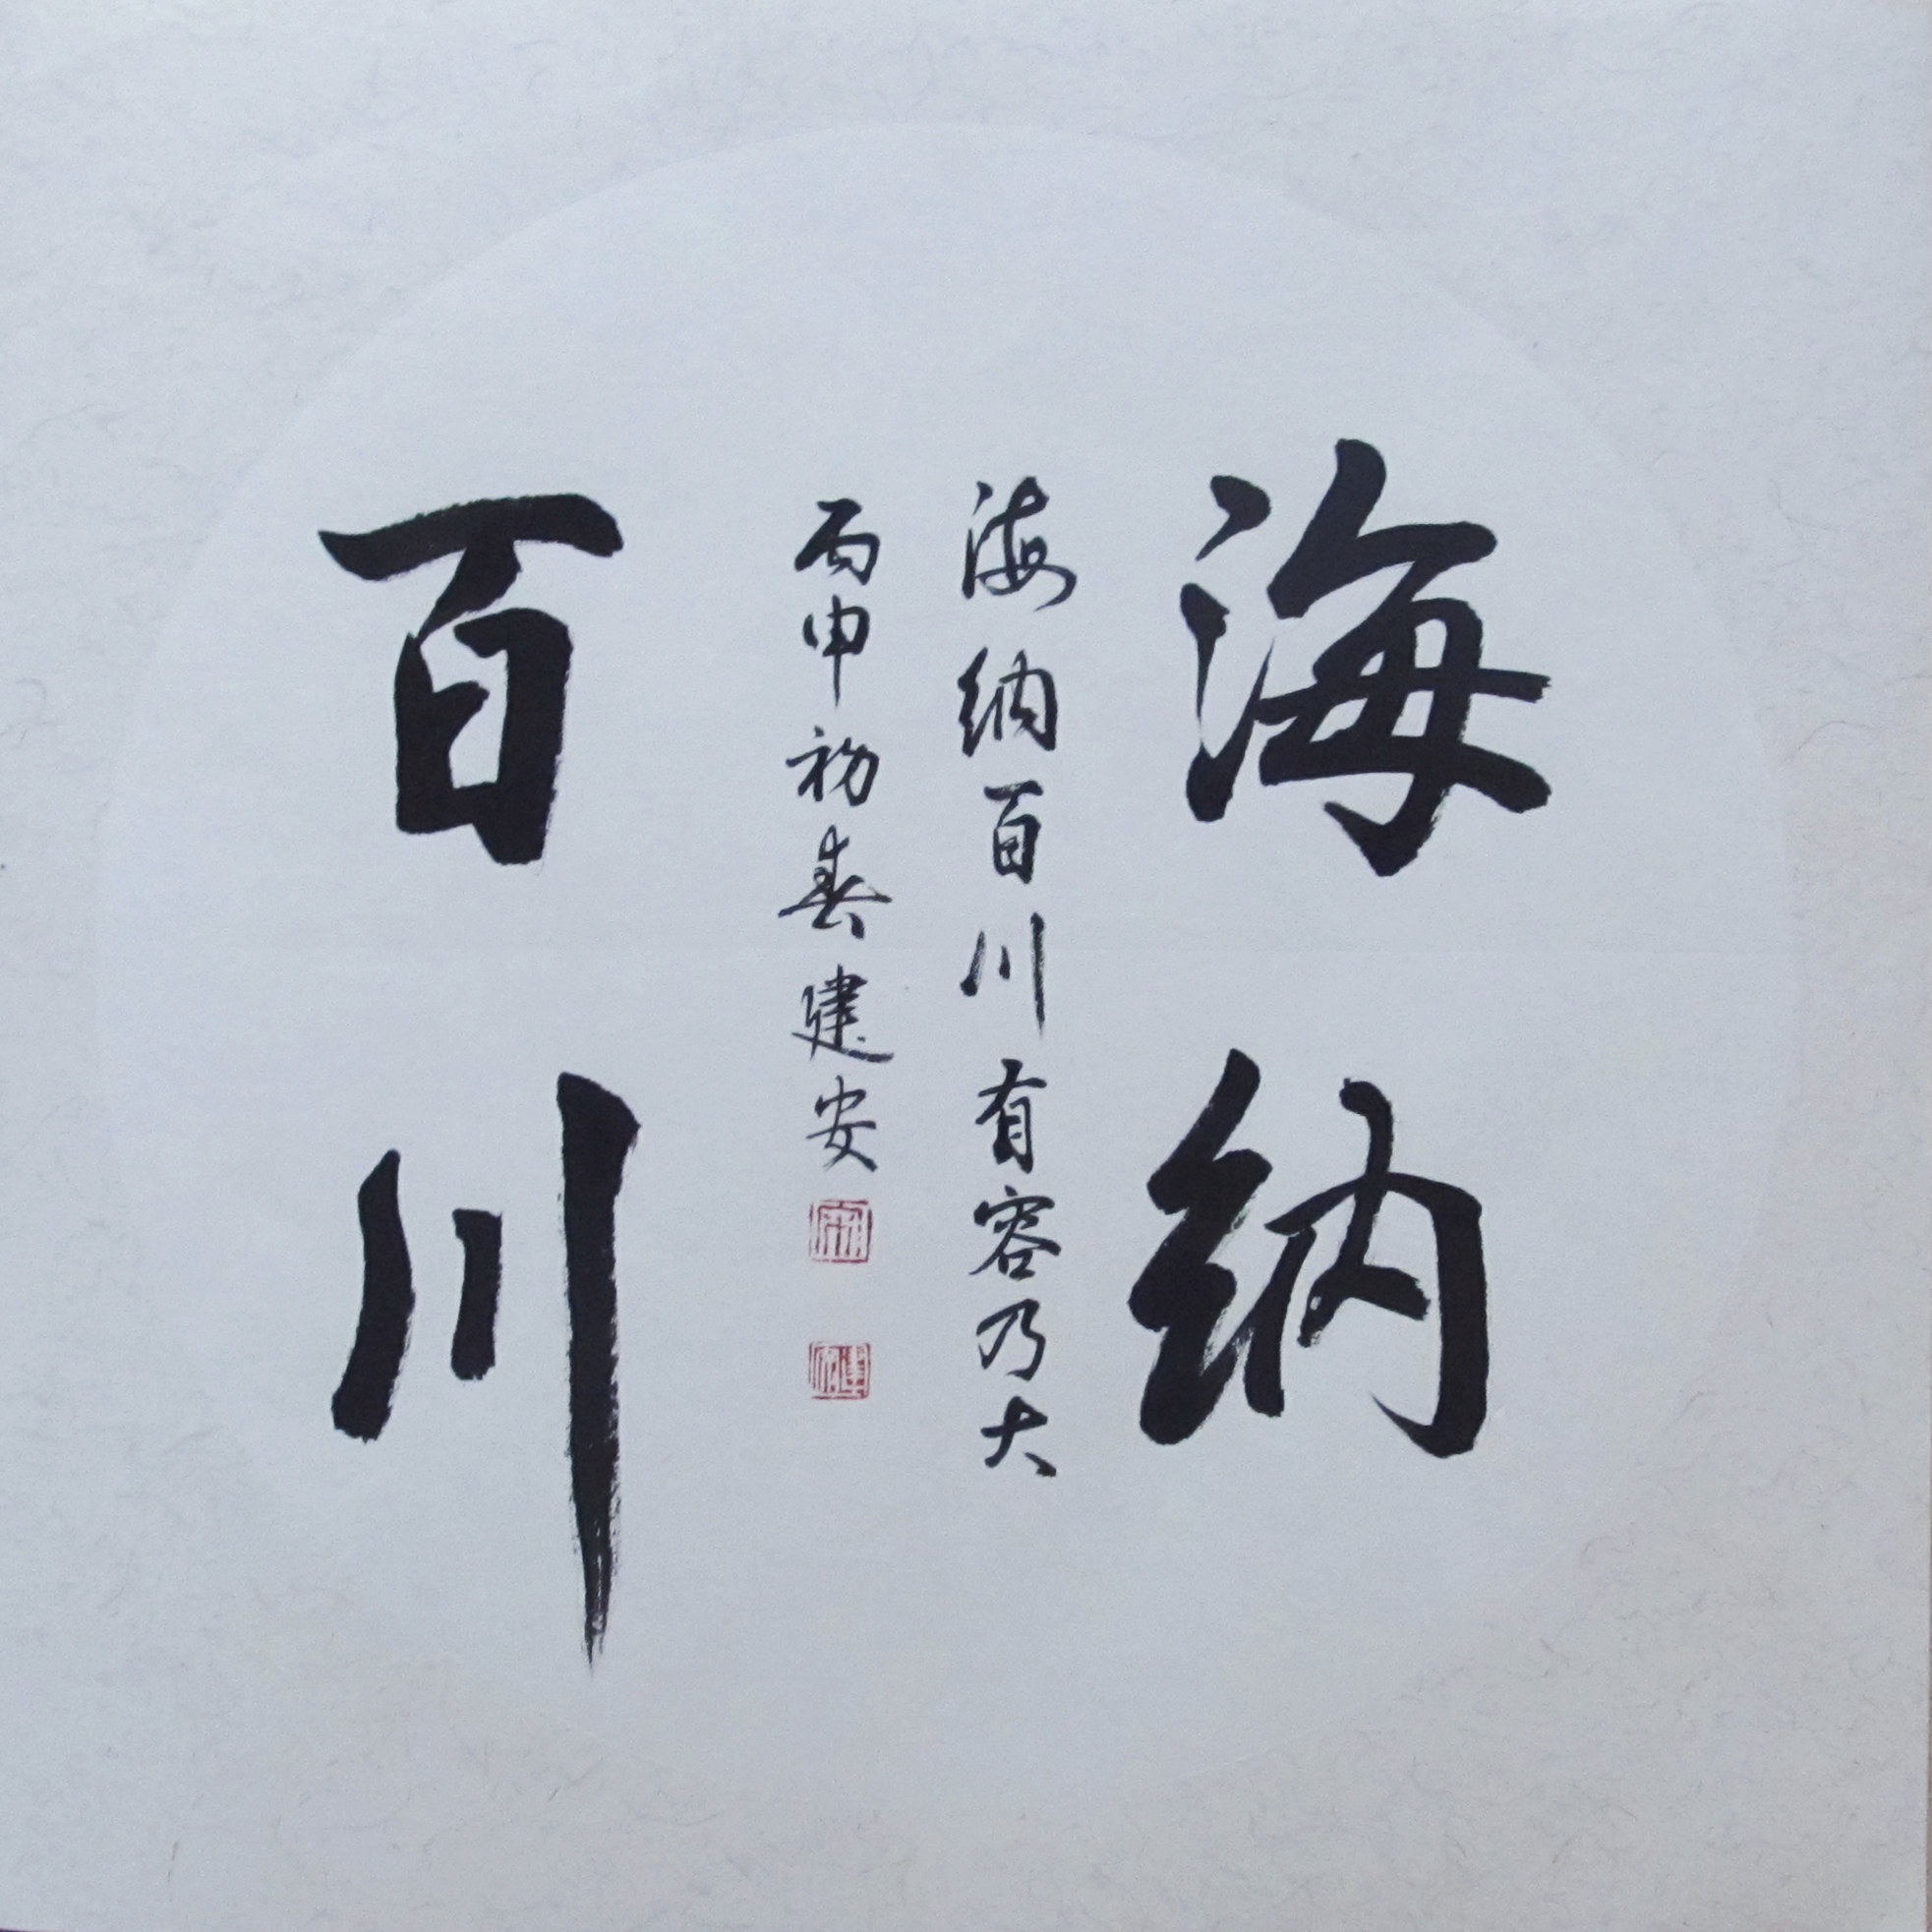 海納
海納百川有容乃大
丙申初春建安
百川